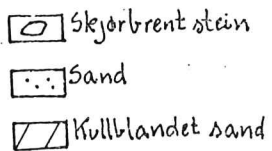 Skjørbrent stein
Sand
Kullblandet sand